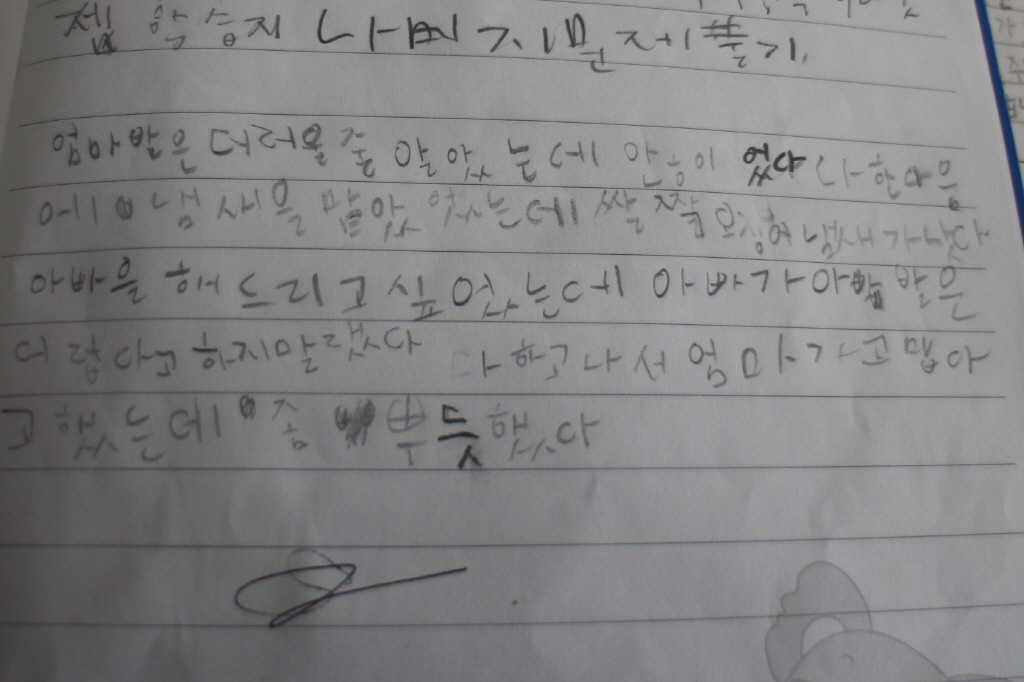 학습지 나머지 문제 풀기.
엄마발은 더러울 줄 알았는데 안 능이 었다 다 한 다음
에 냄새을 맡았었는데 쌀짝 오징어 냄새가 났다
아빠을 해드리고 싶었는데 아빠가 아빠 발은
더럽다고 하지말랬다 다 하고 나서 엄마가 고맙다
고 했는데 좀 뿌듯했다